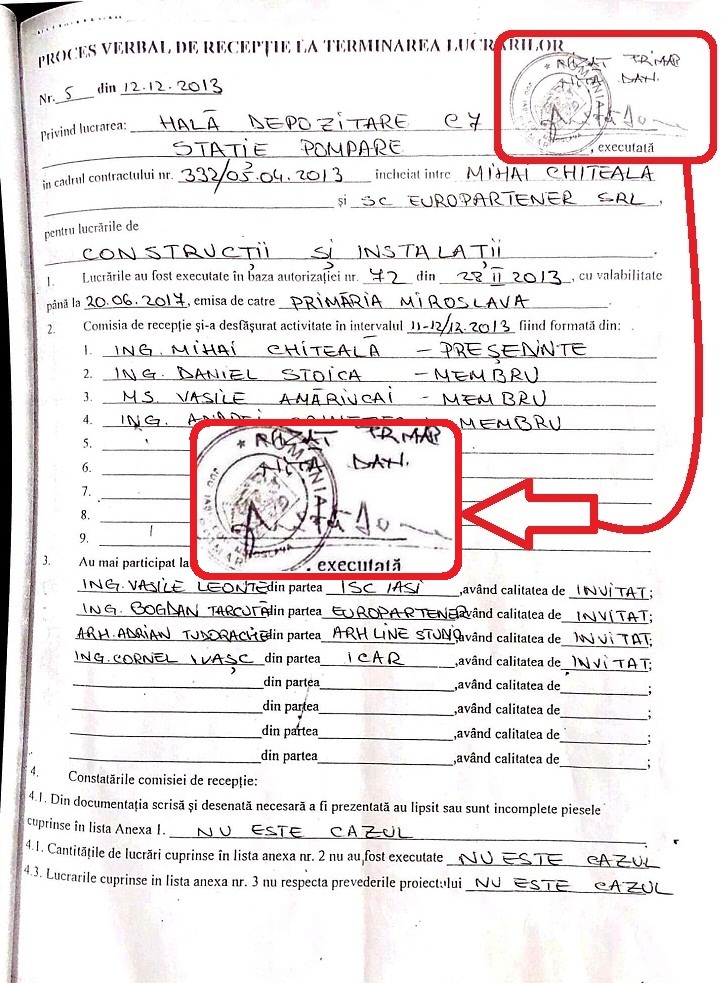 PROCES VERBAL DE RECEPȚIE LA TERMINAREA LUCRĂRILOR
PRIMAR
NIȚĂ DAN.
ROMÂNIA
Nr. 5 din 12.12.2013
Privind lucrarea: HALĂ DEPOZITARE C7
STAȚIE POMPARE , executată
în cadrul contractului nr. 332/05.04.2013 încheiat intre MIHAI CHITEALA
și SC EUROPARTENER SRL,
pentru lucrările de
CONSTRUCȚII și INSTALAȚII.
1. Lucrările au fost executate în baza autorizației nr. 72 din 28 II 2013, cu valabilitate
până la 20.06.2017, emisa de catre PRIMĂRIA MIROSLAVA.
2. Comisia de recepție și-a desfășurat activitate în intervalul 11-12/12.2013 fiind formată din:
1. ING. MIHAI CHITEALĂ - PREȘEDINTE
2. ING. DANIEL STOICA - MEMBRU
3. MS. VASILE AMĂRIUCAI - MEMBRU
4. ING. MEMBRU
5.
6.
7.
8.
9.
PRIMAR
DAN.
ROMÂNIA
MIROSLAVA
. executată
3. Au mai participat la
ING. VASILE LEONTE din partea ISC IASI ,având calitatea de INVITAT;
ING. BOGDAN TARCUȚĂ din partea EUROPARTENER având calitatea de INVITAT;
ARH. ADRIAN TUDORACHE din partea ARH LINE STUDIO ,având calitatea de INVITAT;
ING. CORNEL IVAȘC din partea ICAR ,având calitatea de INVITAT;
din partea ,având calitatea de ;
din partea ,având calitatea de ;
din partea ,având calitatea de ;
din partea ,având calitatea de ;
4. Constatările comisiei de recepție:
4.1. Din documentația scrisă și desenată necesară a fi prezentată au lipsit sau sunt incomplete piesele
cuprinse în lista Anexa 1. NU ESTE CAZUL
4.1. Cantitățile de lucrări cuprinse în lista anexa nr. 2 nu au fost executate NU ESTE CAZUL
4.3. Lucrarile cuprinse in lista anexa nr. 3 nu respecta prevederile proiectului NU ESTE CAZUL